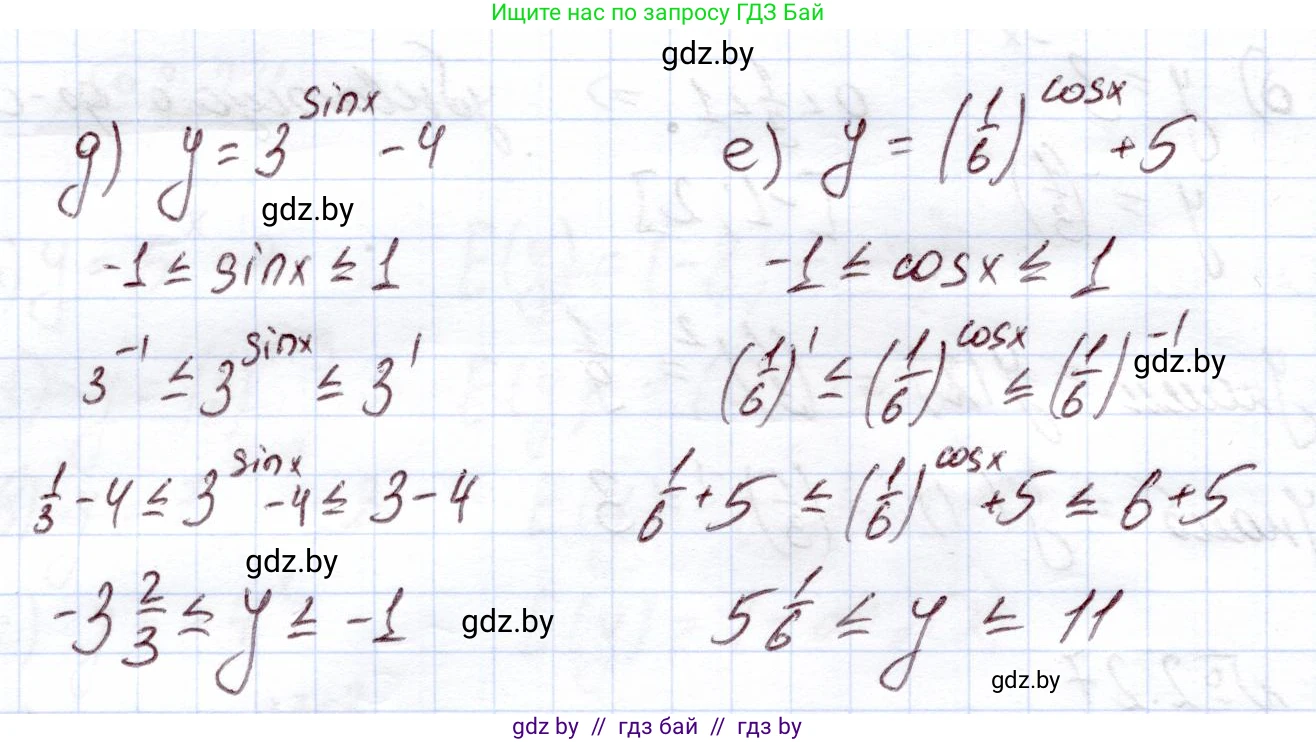 Ищите нас по запросу ГДЗ Бай
gdz.by
д) y = 3^sinx - 4
gdz.by
-1 ≤ sinx ≤ 1
3^-1 ≤ 3^sinx ≤ 3^1
1/3 - 4 ≤ 3^sinx - 4 ≤ 3 - 4
gdz.by
-3 2/3 ≤ y ≤ -1
gdz.by
е) y = (1/6)^cosx + 5
-1 ≤ cosx ≤ 1
(1/6)^1 ≤ (1/6)^cosx ≤ (1/6)^-1
gdz.by
1/6 + 5 ≤ (1/6)^cosx + 5 ≤ 6 + 5
5 1/6 ≤ y ≤ 11
gdz.by
gdz.by // гдз бай // gdz.by